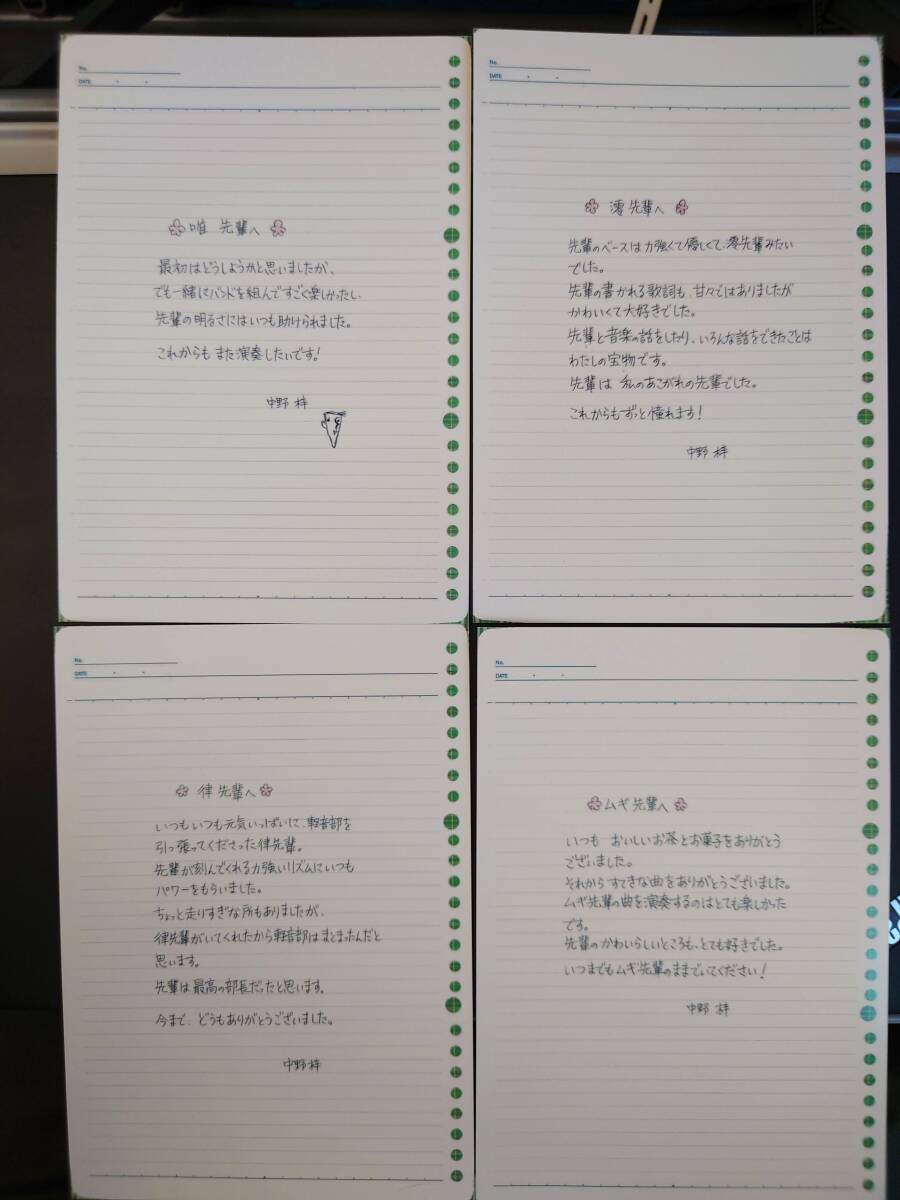 No.
DATE
唯 先輩へ
最初はどうしようかと思いましたが、
でも一緒にバンドを組んですごく楽しかったし、
先輩の明るさにはいつも助けられました。
これからも また演奏したいです!
中野 梓
No.
DATE
澪 先輩へ
先輩のベースは力強くて優しくて、澪先輩みたい
でした。
先輩の書かれる歌詞も、甘々ではありましたが
かわいくて大好きでした。
先輩と音楽の話をしたり、いろんな話をできたことは
わたしの宝物です。
先輩は 私のあこがれの先輩でした。
これからもずっと憧れます!
中野 梓
No.
DATE
律 先輩へ
いつもいつも元気いっぱいに、軽音部を
引っ張ってくださった律先輩。
先輩が刻んでくれる力強いリズムにいつも
パワーをもらいました。
ちょっと走りすぎな所もありましたが、
律先輩がいてくれたから軽音部はまとまったんだと
思います。
先輩は最高の部長だったと思います。
今まで、どうもありがとうございました。
中野 梓
No.
DATE
ムギ 先輩へ
いつも おいしいお茶とお菓子をありがとう
ございました。
それから すてきな曲をありがとうございました。
ムギ先輩の曲を演奏するのはとても楽しかった
です。
先輩のかわいらしいところも、とても好きでした。
いつまでもムギ先輩のままでいてください!
中野 梓